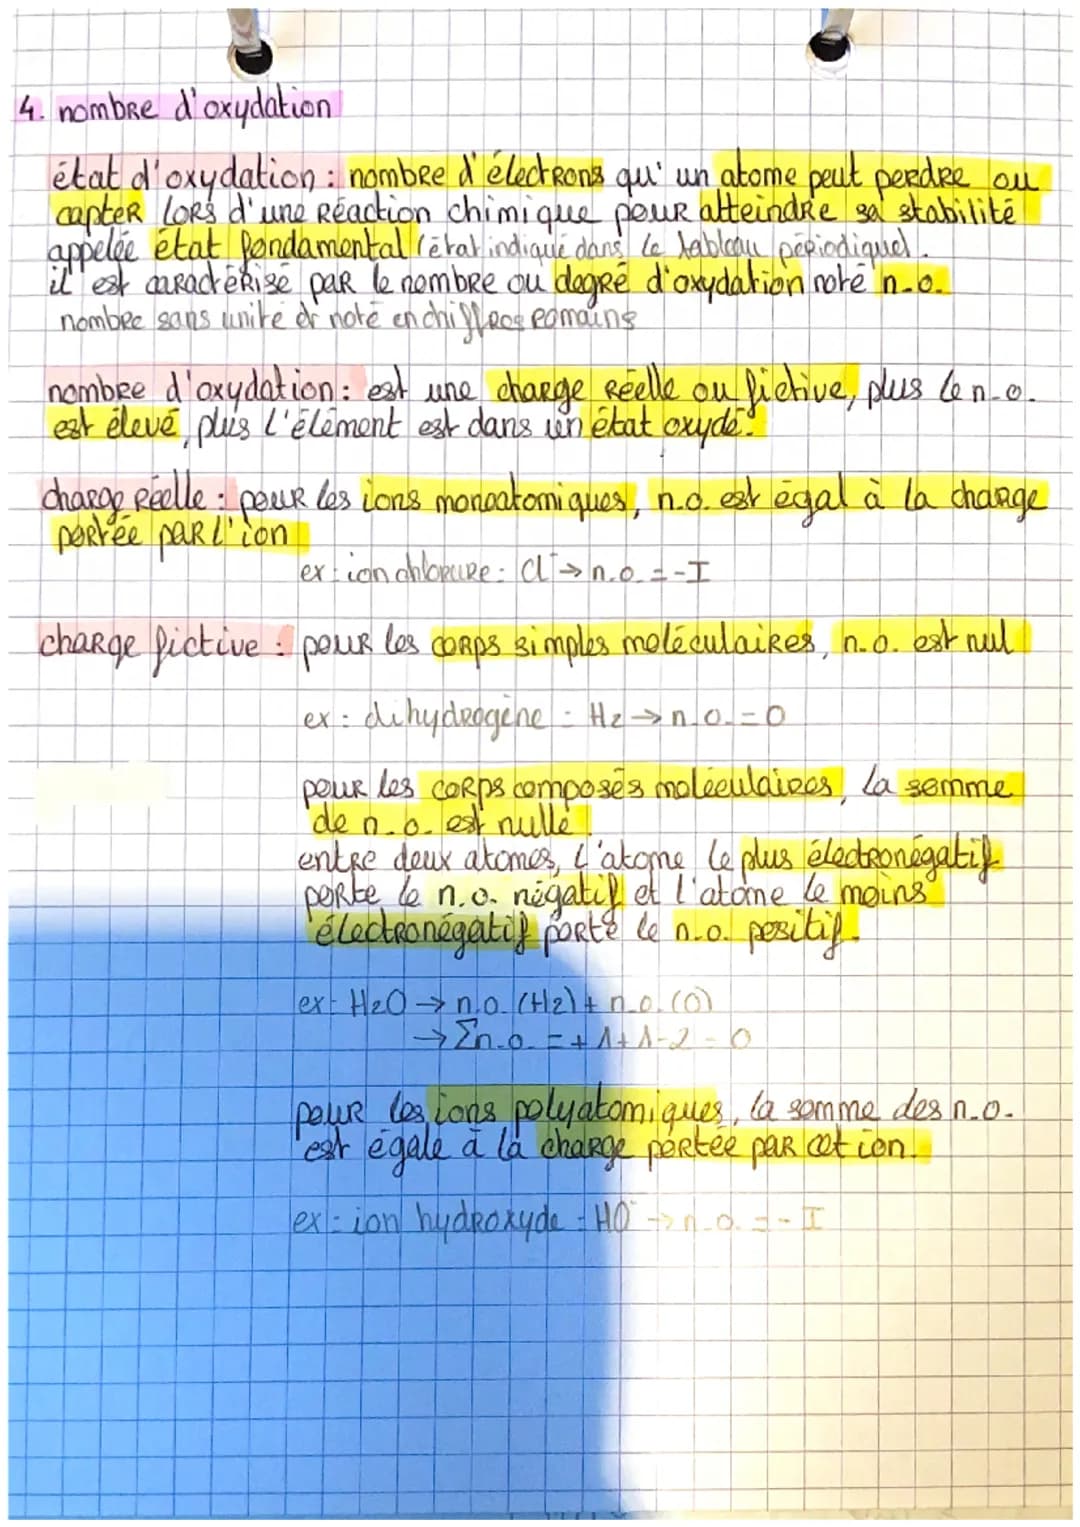 4. nombre d'oxydation
état d'oxydation : nombre d'électrons qu'un atome peut perdre ou
capter lors d'une réaction chimique pour atteindre sa stabilité
appelée état fondamental (état indiqué dans le tableau périodique).
il est caractérisé par le nombre ou degré d'oxydation noté n.o.
nombre sans unité et noté en chiffres romains
nombre d'oxydation : est une charge réelle ou fictive, plus le n.o.
est élevé, plus l'élément est dans un état oxydé.
charge réelle : pour les ions monoatomiques, n.o. est égal à la charge
portée par l'ion
ex : ion chlorure : Cl⁻ → n.o. = -I
charge fictive : pour les corps simples moléculaires, n.o. est nul
ex : dihydrogène : H2 → n.o. = 0
pour les corps composés moléculaires, la somme
de n.o. est nulle.
entre deux atomes, l'atome le plus électronégatif
porte le n.o. négatif et l'atome le moins
électronégatif porte le n.o. positif.
ex : H2O → n.o. (H2) + n.o. (O)
→ Σn.o. = +1+1-2 = 0
pour les ions polyatomiques, la somme des n.o.
est égale à la charge portée par cet ion.
ex : ion hydroxyde : HO⁻ → n.o. = -I